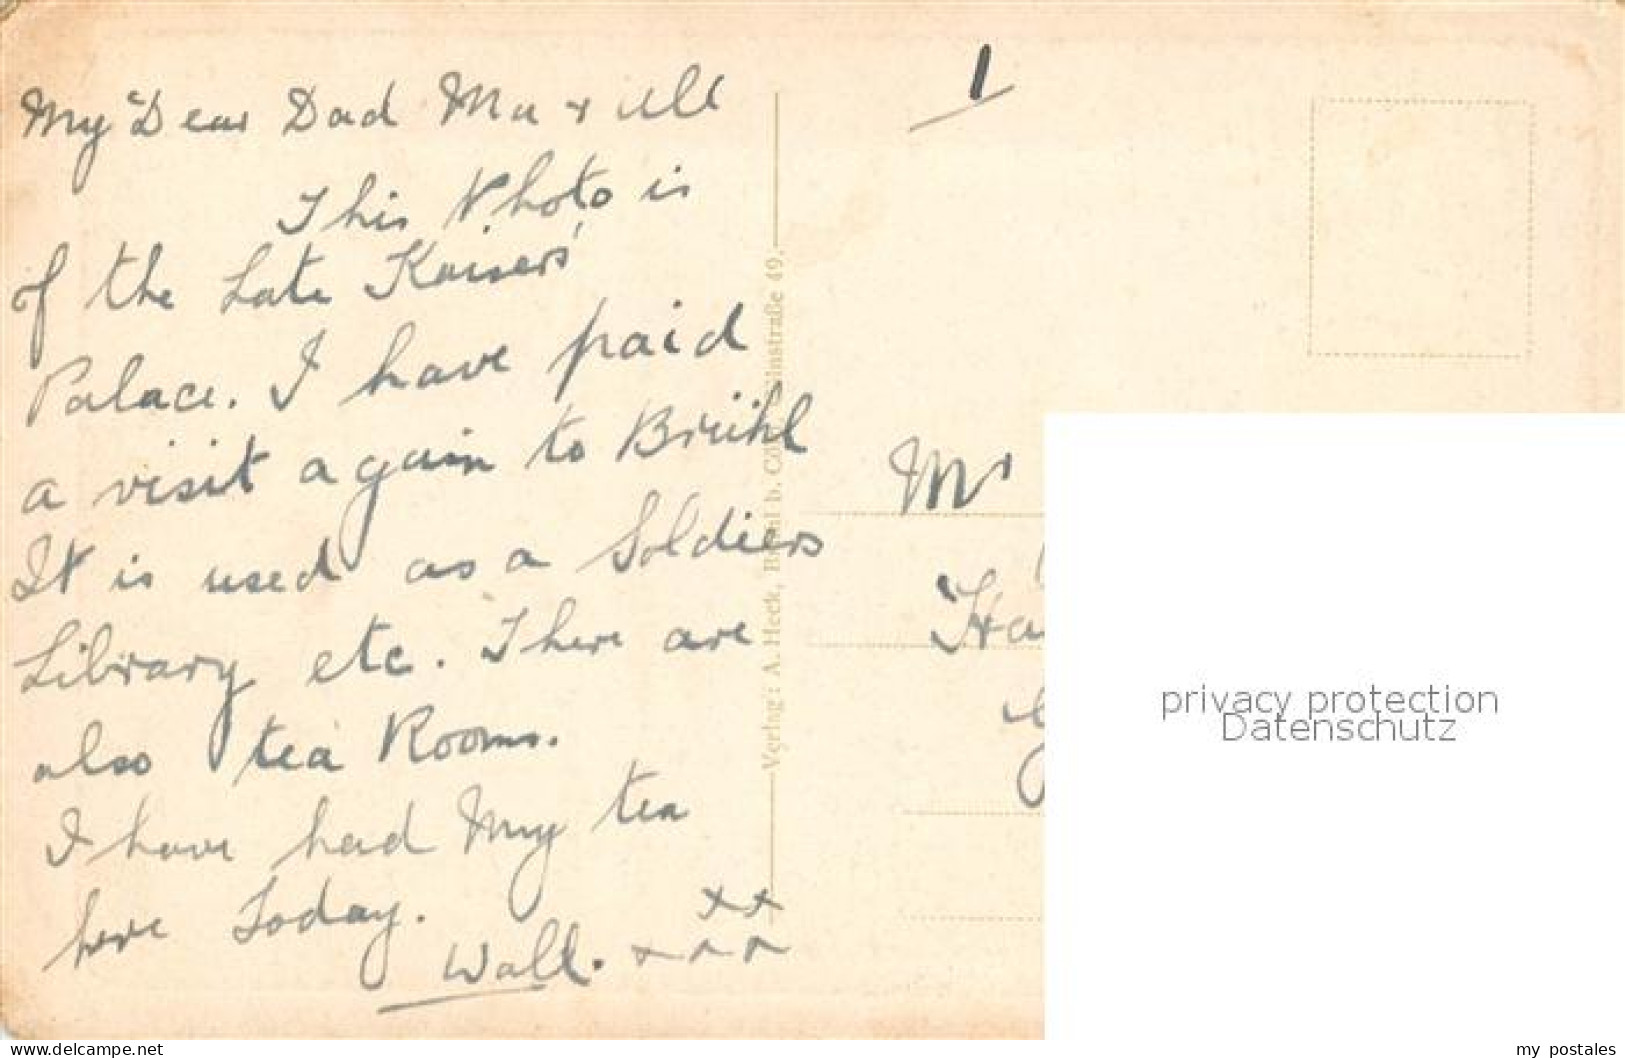 My Dear Dad Ma + All
This Photo is
of the Late Kaisers'
Palace. I have paid
a visit again to Brühl
It is used as a Soldiers
Library etc. There are
also tea Rooms.
I have had My tea
here Today.
Wall. x x x x x
Verlag: A. Heck, Brühl b. Cöln, Cölnstraße 49.
1
Mr
privacy protection
Datenschutz
www.delcampe.net
my_postales